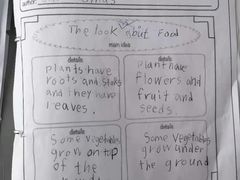 The look about Food
main idea
details
plants have
roots and
and they have
leaves.
details
plant have
flowers and
fruit and
seeds.
details
Some vegetables
grow on top
of the
details
Some vegetables
grow under
the ground